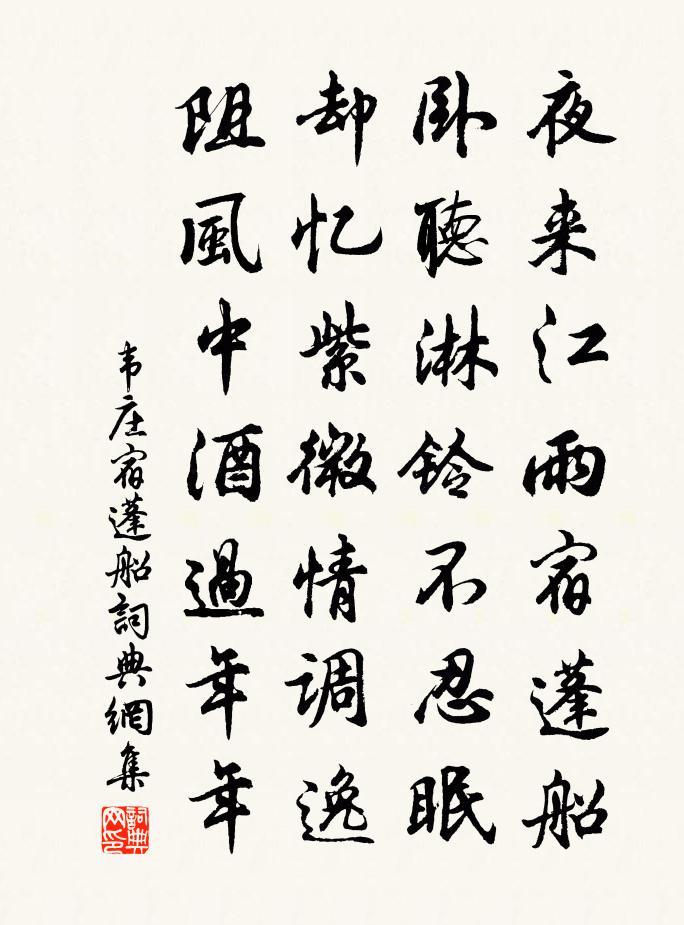 夜来江雨宿蓬船
卧聽淋鈴不忍眠
却忆紫微情调逸
阻風中酒過年年
韦庄宿蓬船詞典網集
詞典网印